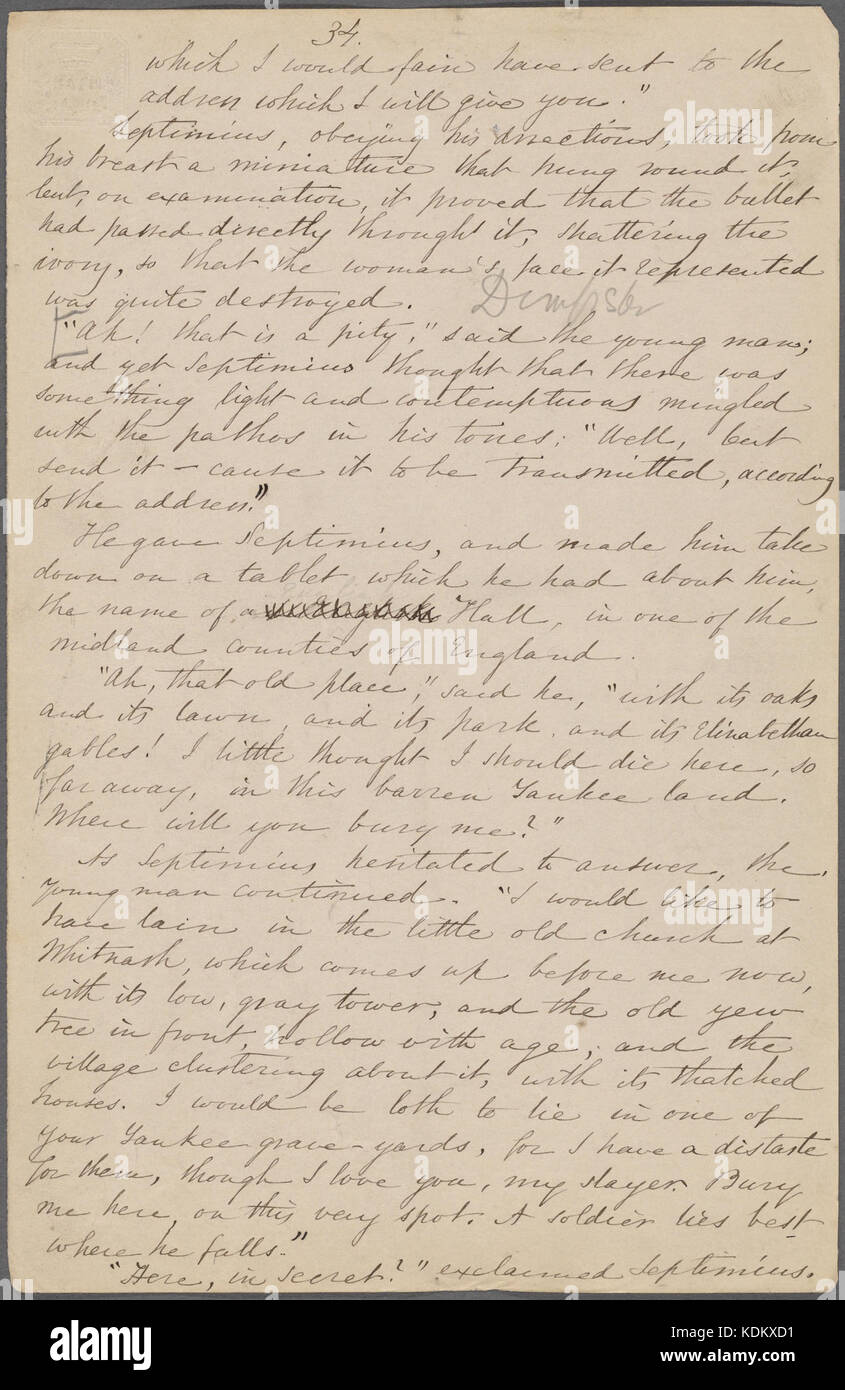 34.
which I would fain have sent to the
address which I will give you."
Septimius, obeying his directions, took from
his breast a miniature that hung round it;
but, on examination, it proved that the bullet
had passed directly through it, shattering the
ivory, so that the woman's face it represented
was quite destroyed.
"Ah! that is a pity," said the young man;
and yet Septimius thought that there was
something light and contemptuous mingled
with the pathos in his tones; "Well, but
send it – cause it to be transmitted, according
to the address."
He gave Septimius, and made him take
down on a tablet which he had about him,
the name of a Hall, in one of the
midland counties of England.
"Ah, that old place," said he, "with its oaks
and its lawn, and its park, and its Elizabethan
gables! I little thought I should die here, so
far away, in this barren Yankee land.
Where will you bury me?"
As Septimius hesitated to answer, the
young man continued. "I would like to
have lain in the little old church at
Whitnash, which comes up before me now,
with its low, gray tower, and the old yew
tree in front, hollow with age, and the
village clustering about it, with its thatched
houses. I would be loth to lie in one of
your Yankee grave-yards, for I have a distaste
for them, though I love you, my slayer. Bury
me here, on this very spot. A soldier lies best
where he falls."
"Here, in secret?" exclaimed Septimius.
alamy
Image ID: KDKXD1
www.alamy.com